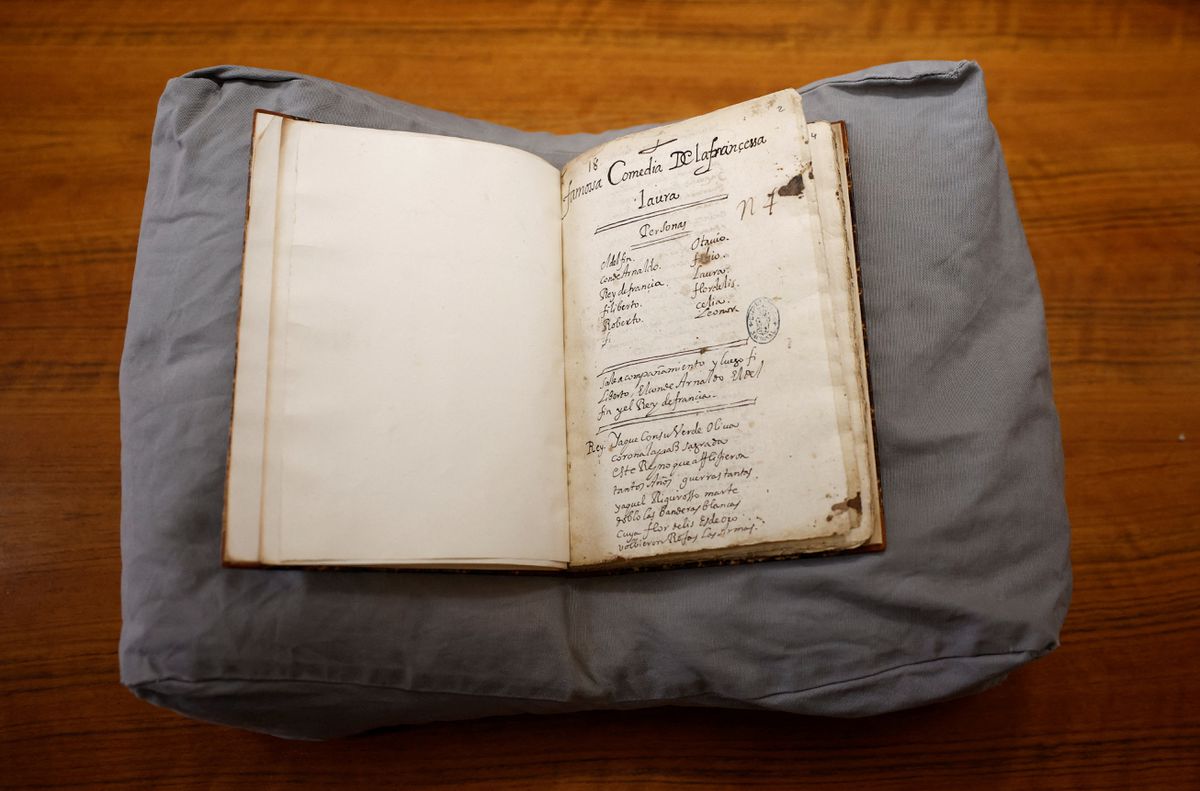 2
4
18
famosa Comedia De lafrancessa
Laura
N 7
Personas
el delfin. Otauio.
conde Arnaldo. fabio.
Rey defrancia. Laura.
filiberto. flordelis.
Roberto. celia.
fi Leonora
Sale acompañamiento y luego fi
liberto, El conde Arnaldo El del
fin y el Rey defrancia.
Rey. Yaque Consu Verde Oliua
corona la paz sagrada
este Reyno que afligieron
tantos Años guerras tantas
yaquel Riguroso marte
doblo las Banderas Blancas
cuya flor delis Es de oro
volbieron Rejas las armas